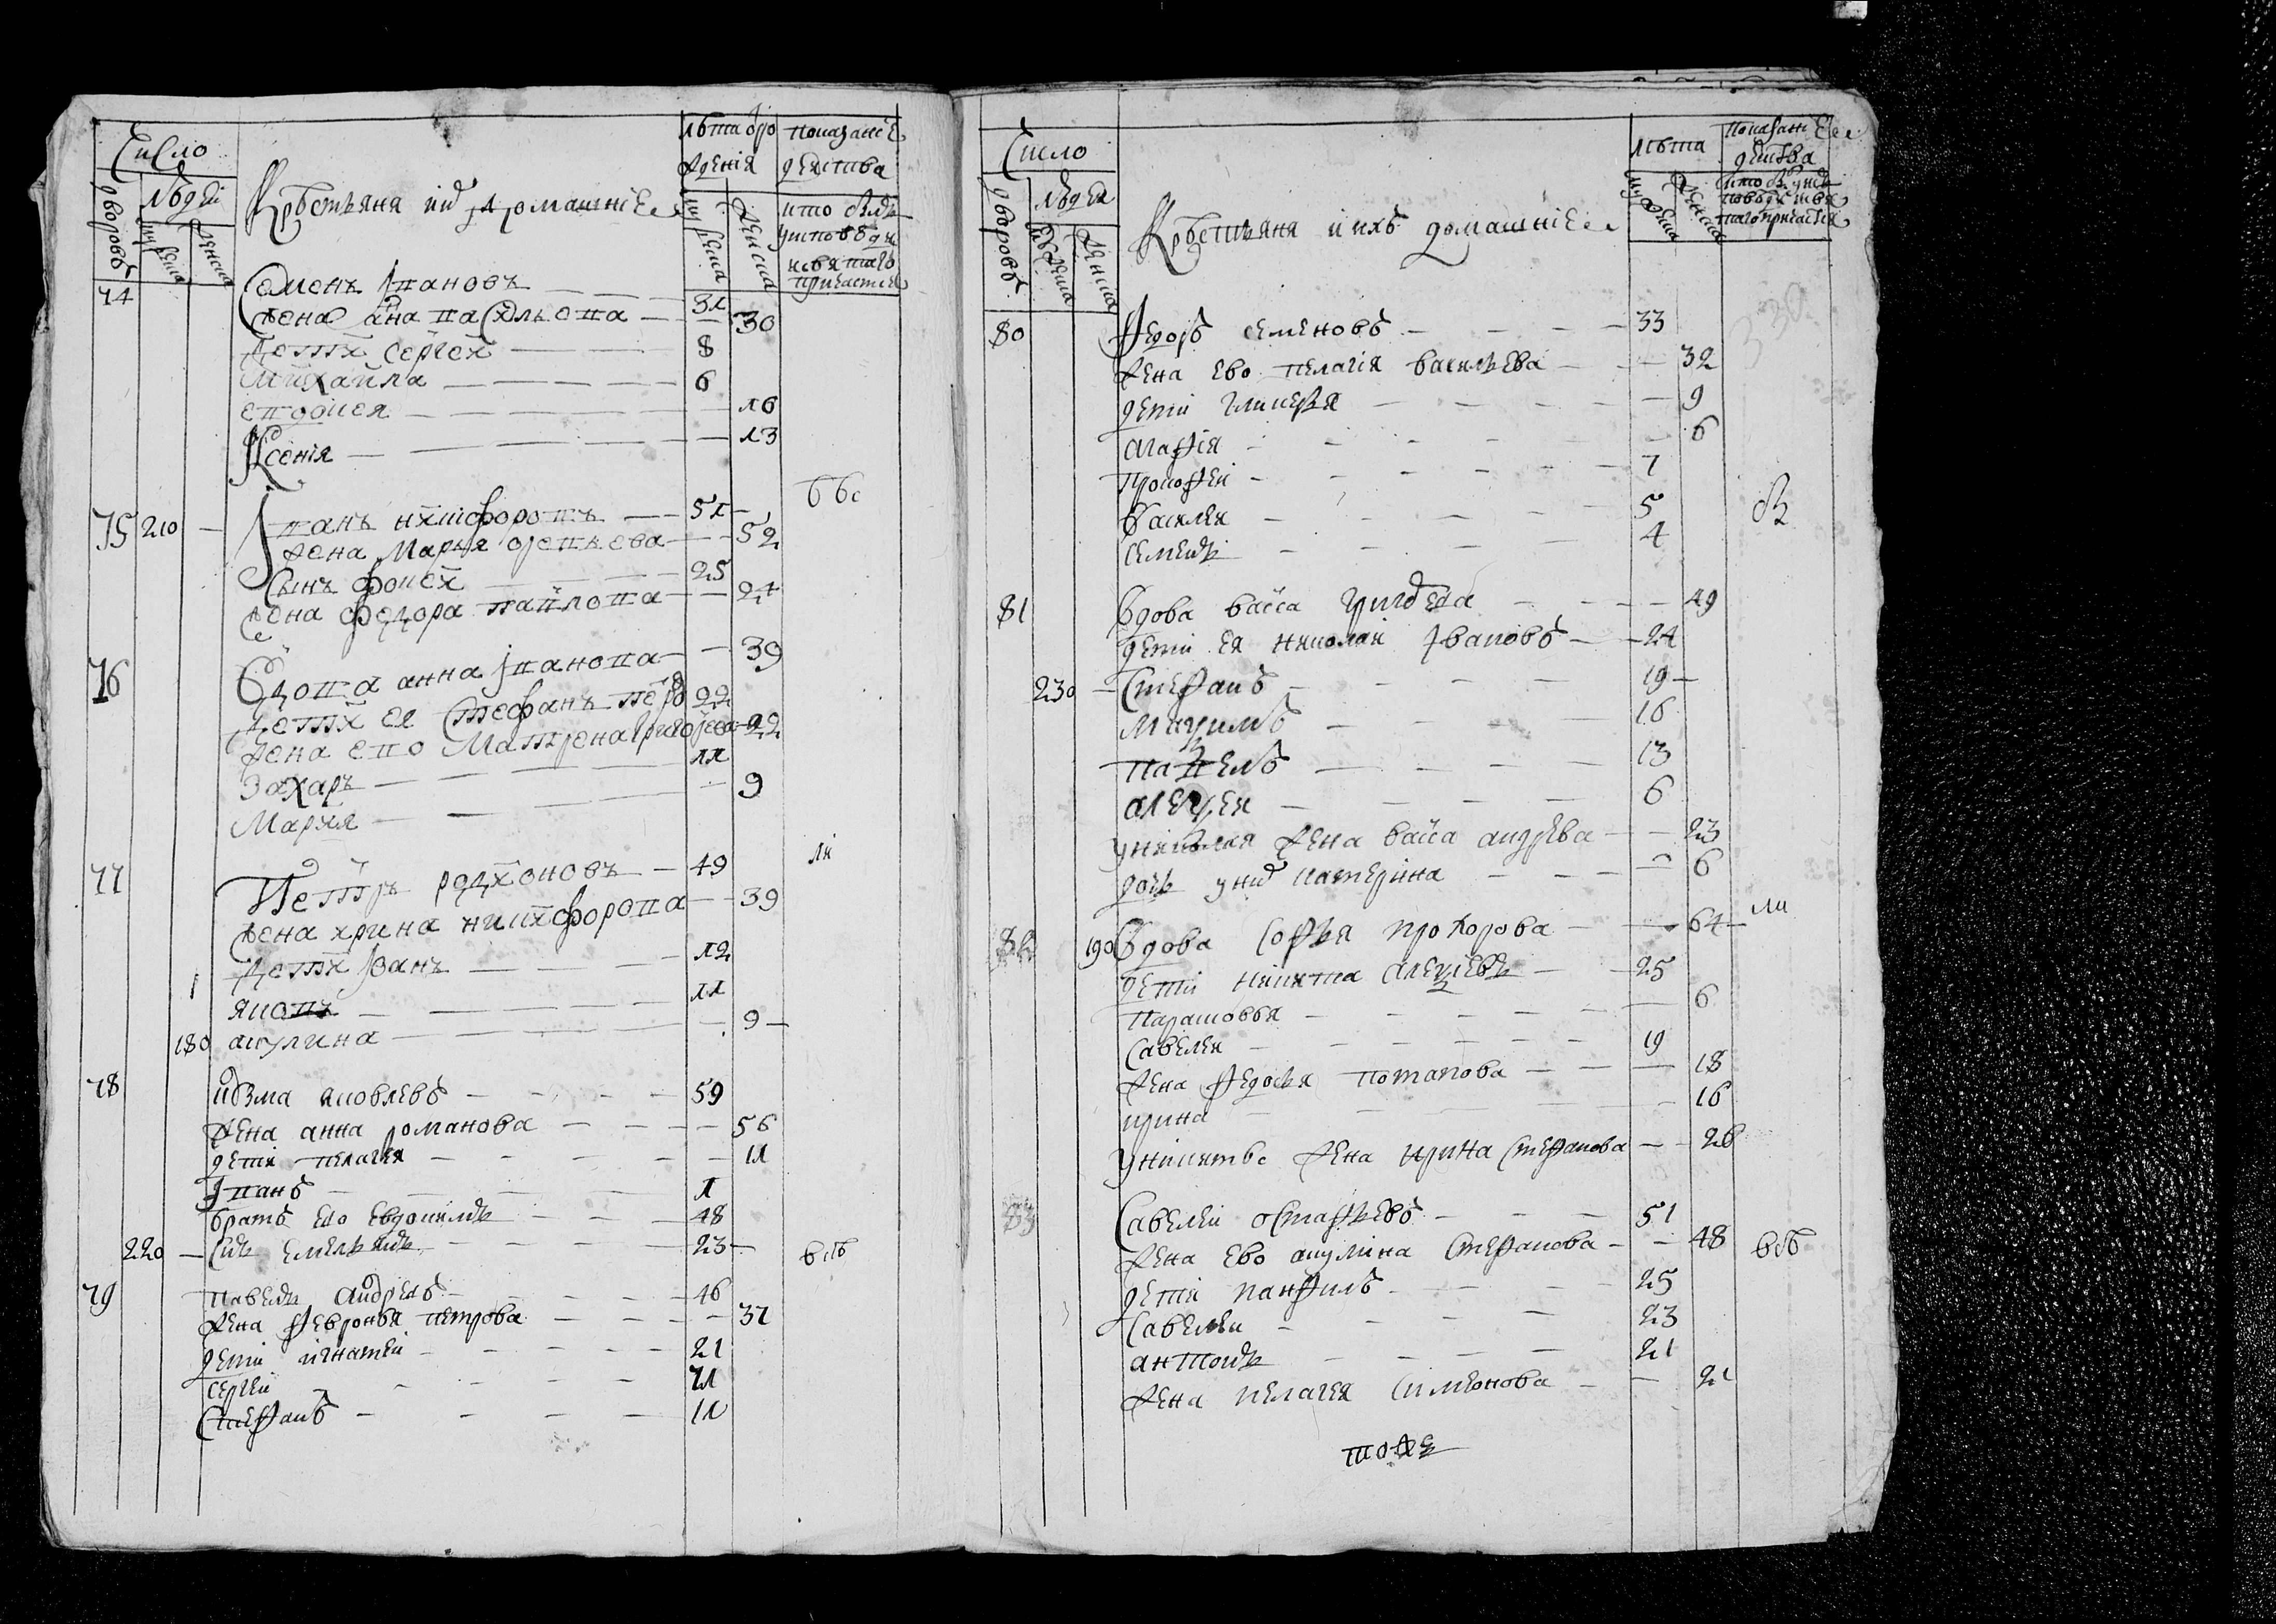 Число
дворовъ
людей
мужеска
женска
Крестьяна и их домашние
лѣта рождения
мужеска
женска
показание действа
кто былъ у исповеди и святаго причастия
74
Семенъ Ивановъ 31
жена Анна Савельева 30
дети Сергей 8
Михайла 6
евдокея 16
Ксения 13
75 210 Иванъ никифоровъ 51
жена Марья 52
Сынъ фокей 25
жена федора павлова 24
76 Вдова анна Иванова 39
дети ея Стефанъ петро 22
жена ево Матрена григорева 22
Захаръ 11
Мария 9
77 Петръ родионовъ 49
жена ирина никифорова 39
дети Иванъ 12
яковъ 11
180 акулина 9
78 кузма яковлевъ 59
жена анна романова 56
дети пелагея 11
Иванъ 1
братъ ево Евдокимъ 48
220 Сынъ Емельянъ 23
вси
79 павелъ андреевъ 46
жена февронья петрова 37
дети игнатей 21
сергей 11
Стефанъ 11
Число
дворовъ
людей
мужеска
женска
Крестьяна и ихъ домашние
лѣта
мужеска
женска
показание действа
кто былъ у исповеди и святаго причастия
80 федоръ семеновъ 33
жена ево пелагия васильева 32
дети гликерья 9
агафия 6
прокофей 7
василей 5
семенъ 4
81 Вдова васса 49
дети ея николай Ивановъ 24
230 Стефанъ 19
Макимъ 16
павелъ 13
алексей 6
у николая жена васса андрева 23
дочь у них катерина 6
82 190 Вдова софья прохорова 64
дети никита алексіевъ 25
парасковья 6
савелей 19
жена федосья потапова 18
ирина 16
у никиты жена ирина стефанова 26
83 Савелей остафьевъ 51
жена ево акулина стефанова 48
вси
дети панфилъ 25
савелей 23
антонъ 21
жена пелагея симионова 21
тоже